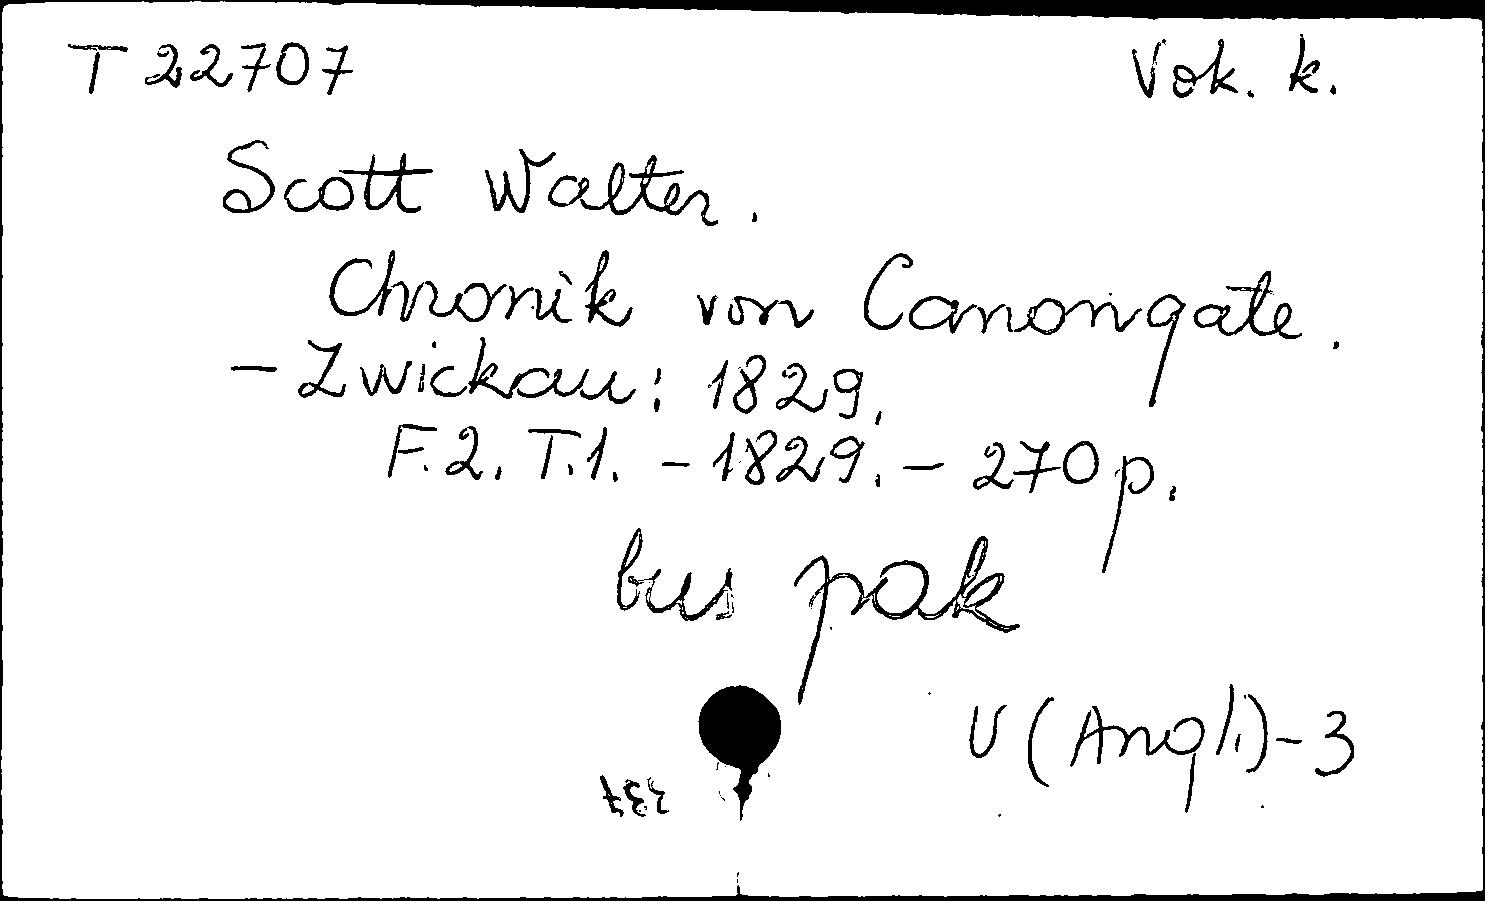 T 22707 Vok. k.
Scott Walter.
Chronik von Canongate.
- Zwickau: 1829.
F.2. T.1. - 1829. - 270 p.
bus pak
U (Angl.) - 3
337